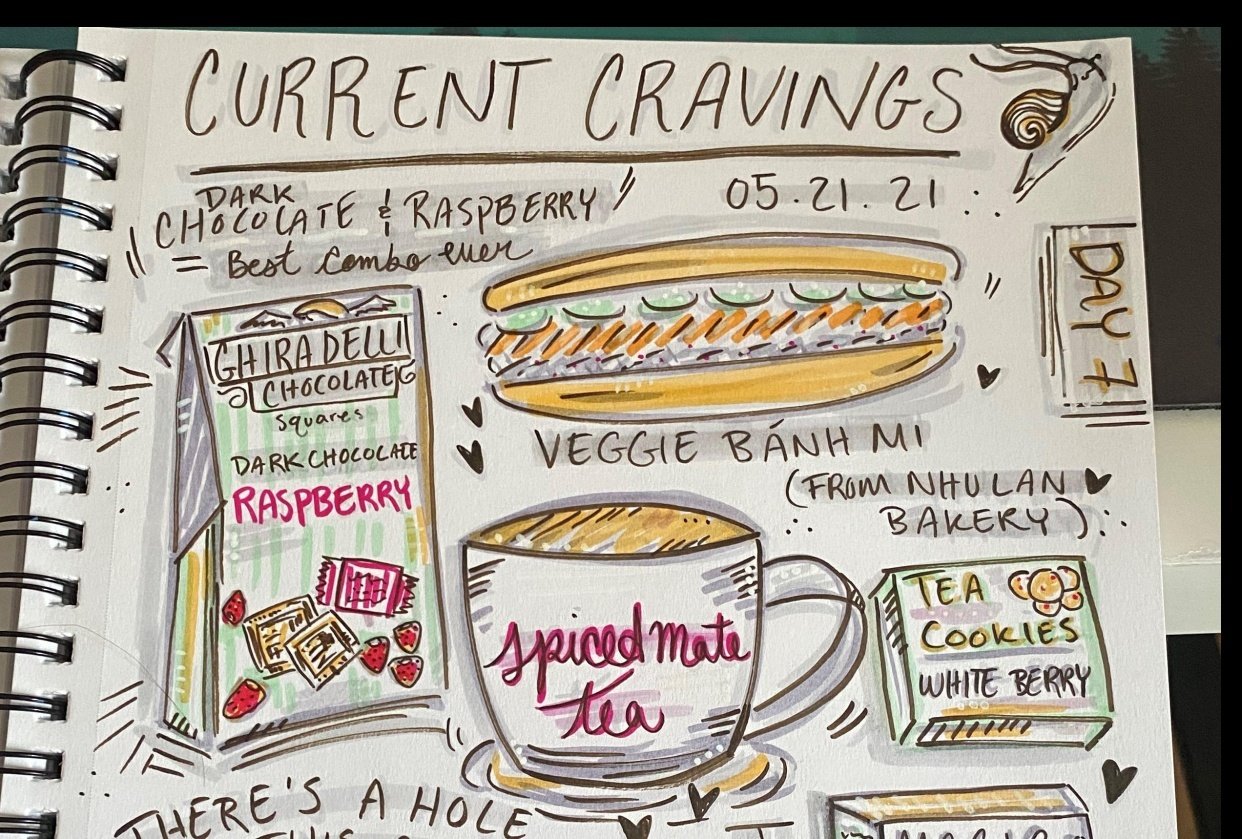 CURRENT CRAVINGS
05.21.21
DAY 7
DARK
CHOCOLATE & RASPBERRY
= Best combo ever
GHIRADELLI
CHOCOLATE
squares
DARK CHOCOLATE
RASPBERRY
VEGGIE BÁNH MI
(FROM NHU LAN
BAKERY)
spiced mate
tea
TEA
COOKIES
WHITE BERRY
THERE'S A HOLE